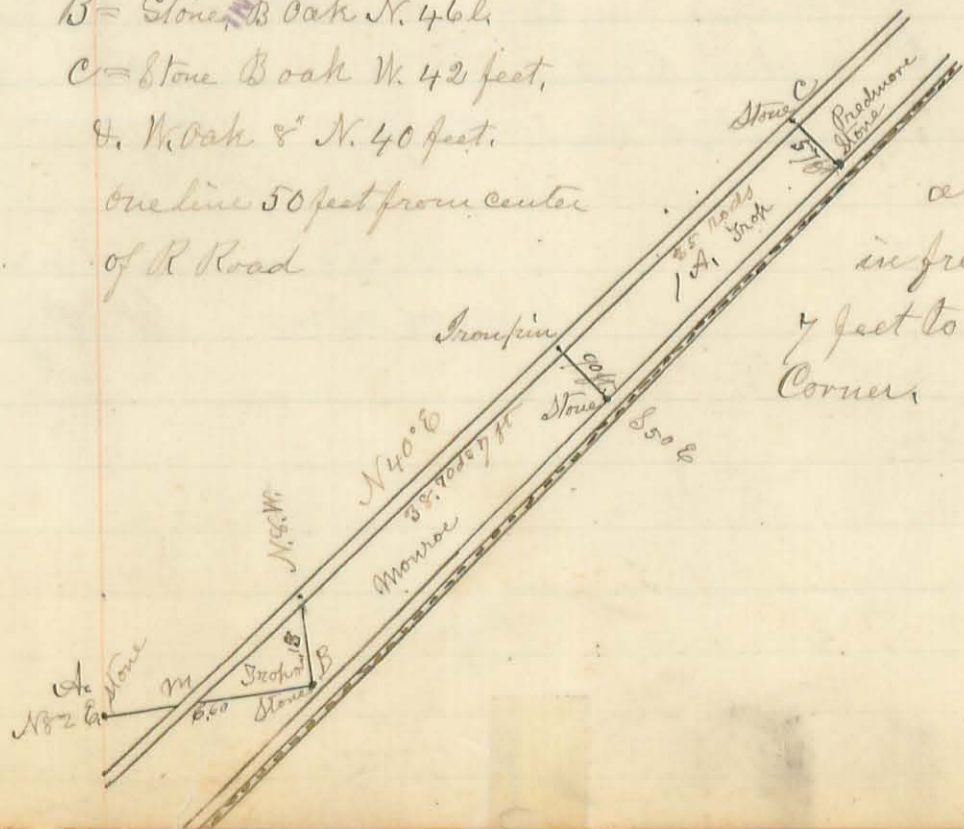 B = Stone, B Oak N. 46 l.
C = Stone B oak W. 42 feet,
&. W. Oak 8" N. 40 feet.
one line 50 feet from center
of R Road
in fre
7 feet to
Corner.
Stone C
Predmore
Stone
85 rods
1 A. Trop
Iron pin
90 ft.
Stone
S 50 E
N 40° E
38. rods 7 ft
Monroe
N. 8. W.
A.
Stone
N 82 E.
m
6.60
Trop
Stone B